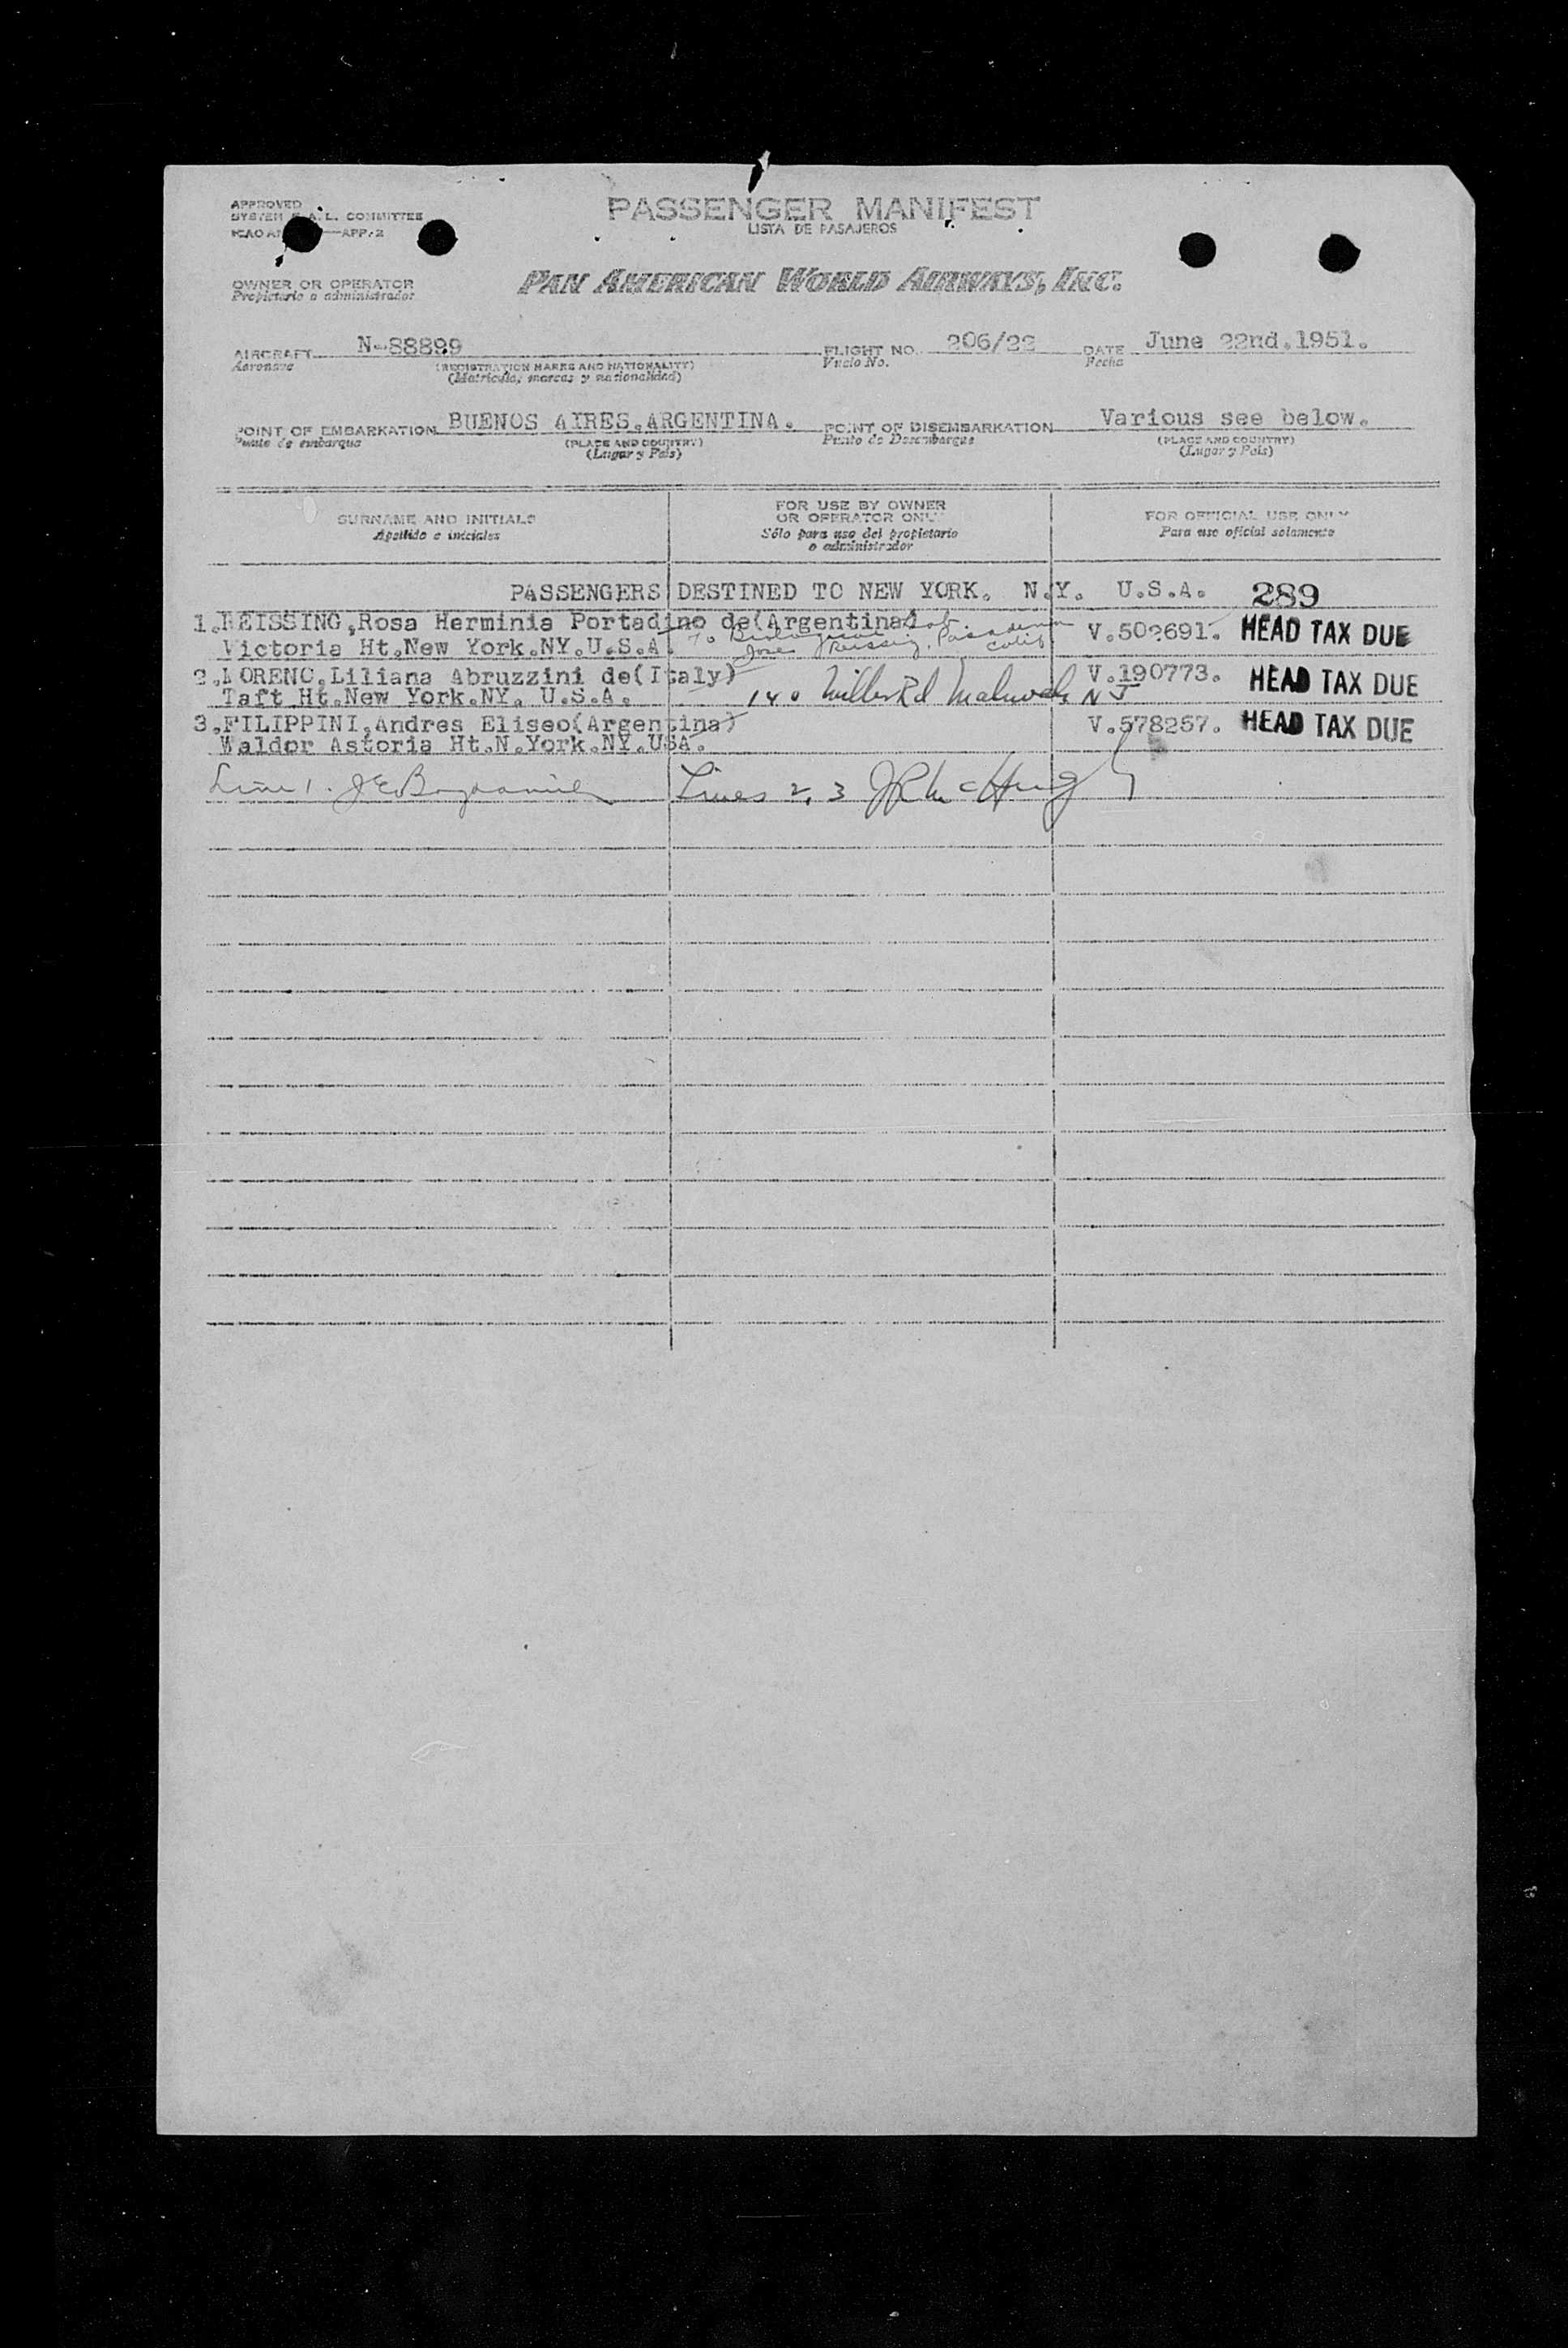 APPROVED
SYSTEM F.A.L. COMMITTEE
ICAO —APP. 2
PASSENGER MANIFEST
LISTA DE PASAJEROS
OWNER OR OPERATOR
Propietario o administrador
PAN AMERICAN WORLD AIRWAYS, INC.
AIRCRAFT N-88899 FLIGHT NO. 206/22 DATE June 22nd.1951.
Aeronave (REGISTRATION MARKS AND NATIONALITY) Vuelo No. Fecha
(Matricula, marcas y nacionalidad)
POINT OF EMBARKATION BUENOS AIRES.ARGENTINA. POINT OF DISEMBARKATION Various see below.
Punto de embarque (PLACE AND COUNTRY) Punto de Desembarque (PLACE AND COUNTRY)
(Lugar y Pais) (Lugar y Pais)
SURNAME AND INITIALS FOR USE BY OWNER OR OPERATOR ONLY FOR OFFICIAL USE ONLY
Apellido e iniciales Sólo para uso del propietario o administrador Para uso oficial solamente
PASSENGERS DESTINED TO NEW YORK. N.Y. U.S.A. 289
1.REISSING,Rosa Herminia Portadino de(Argentina) Lab. Pasadena V.502691. HEAD TAX DUE
Victoria Ht.New York.NY.U.S.A. Jose Reissig. Calif
2.MORENO,Liliana Abruzzini de(Italy) V.190773. HEAD TAX DUE
Taft Ht.New York.NY. U.S.A. 140 Miller Rd Mahwah NJ
3.FILIPPINI,Andres Eliseo(Argentina) V.578257. HEAD TAX DUE
Waldor Astoria Ht.N.York.NY.USA.
Line 1. Lines 2, 3